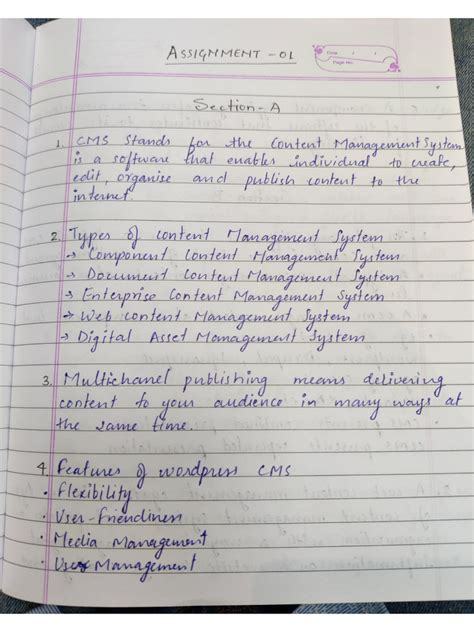 ASSIGNMENT - 01
Date / /
Page No.
Section - A
1. CMS Stands for the Content Management System
is a software that enables individual to create,
edit, organise and publish content to the
internet.
2. Types of content Management System
→ Component Content Management System
→ Document Content Management System
→ Enterprise Content Management System
→ Web content Management System
→ Digital Asset Management System
3. Multichanel publishing means delivering
content to your audience in many ways at
the same time.
4. Features of wordpress CMS
• Flexibility
• User-friendliness
• Media Management
• User Management